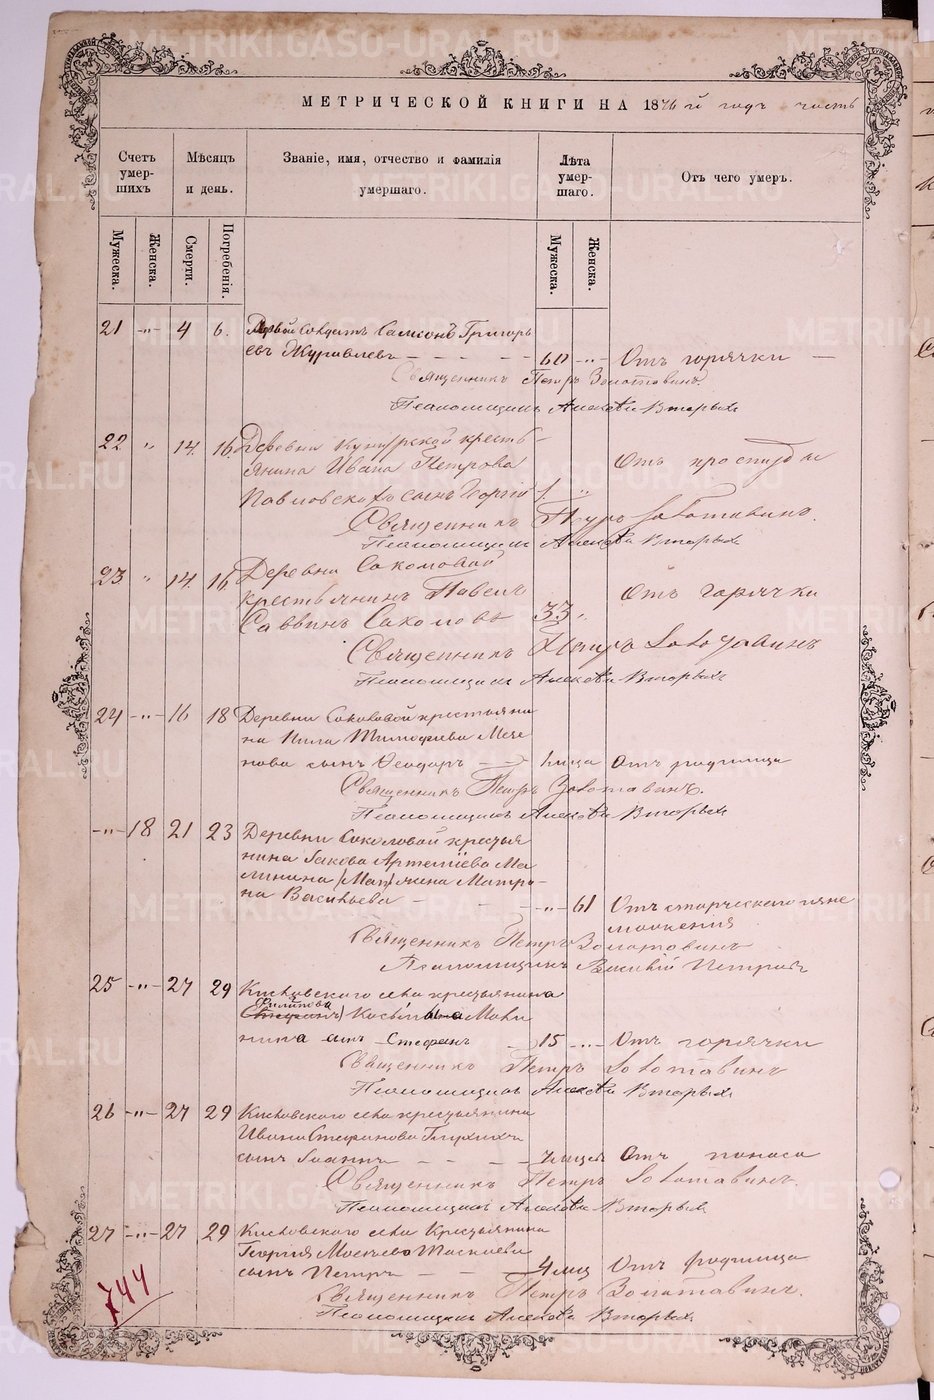 МЕТРИЧЕСКОЙ КНИГИ НА 1876й годъ часть
Счетъ умер-шихъ
Мѣсяцъ и день.
Званіе, имя, отчество и фамилія умершаго.
Лѣта умер-шаго.
Отъ чего умеръ.
Мужеска. Женска. Смерти. Погребенія. Мужеска. Женска.
21 -"- 4 6. солдатъ Самсонъ Григорь
евъ Журавлевъ - - - - 60 -"- Отъ горячки -
Священникъ Петръ Золотавинъ
Псаломщикъ Алексѣй Вторыхъ
22 " 14. 16. Деревни кресть-
янина Ивана Петрова Отъ простуды
Павловскаго сынъ Георгій 1 "
Священникъ Петръ Золотавинъ.
Псаломщикъ Алексѣй Вторыхъ
23 " 14. 16. Деревни Соколовой
крестьянинъ Павелъ Отъ горячки
Саввинъ Соколовъ 33 "
Священникъ Петръ Золотавинъ
Псаломщикъ Алексѣй Вторыхъ
24 -"- 16 18 Деревни Соколовой крестьяни
на Нила Тимофѣева
нова сынъ Ѳеодоръ Отъ родимца
Священникъ Петръ Золотавинъ.
Псаломщикъ Алексѣй Вторыхъ
-"- 18 21 23 Деревни Соколовой крестья
нина Іакова Артемьева Ма
линина жена Матро-
на Васильева - - - -"- 61 Отъ старческаго изне
можения
Священникъ Петръ Золотовинъ
Псаломщикъ Василій Петровъ
25 -"- 27 29 Кисловского села крестьянина
Филипова
Косьмина Мали
нина сынъ Стефанъ 15 -"- Отъ горячки
Священникъ Петръ Золотавинъ
Псаломщикъ Алексѣй Вторыхъ
26 -"- 27 29 Кисловского села крестьянина
Ивана Стефанова Глухихъ
сынъ Іоаннъ - - - Отъ поноса
Священникъ Петръ Золотавинъ
Псаломщикъ Алексѣй Вторыхъ
27 -"- 27 29 Кисловского села Крестьянина
Георгія
сынъ Петръ - - - 4 мец Отъ родимца
Священникъ Петръ Золотавинъ.
Псаломщикъ Алексѣй Вторыхъ
744
METRIKI.GASO-URAL.RU